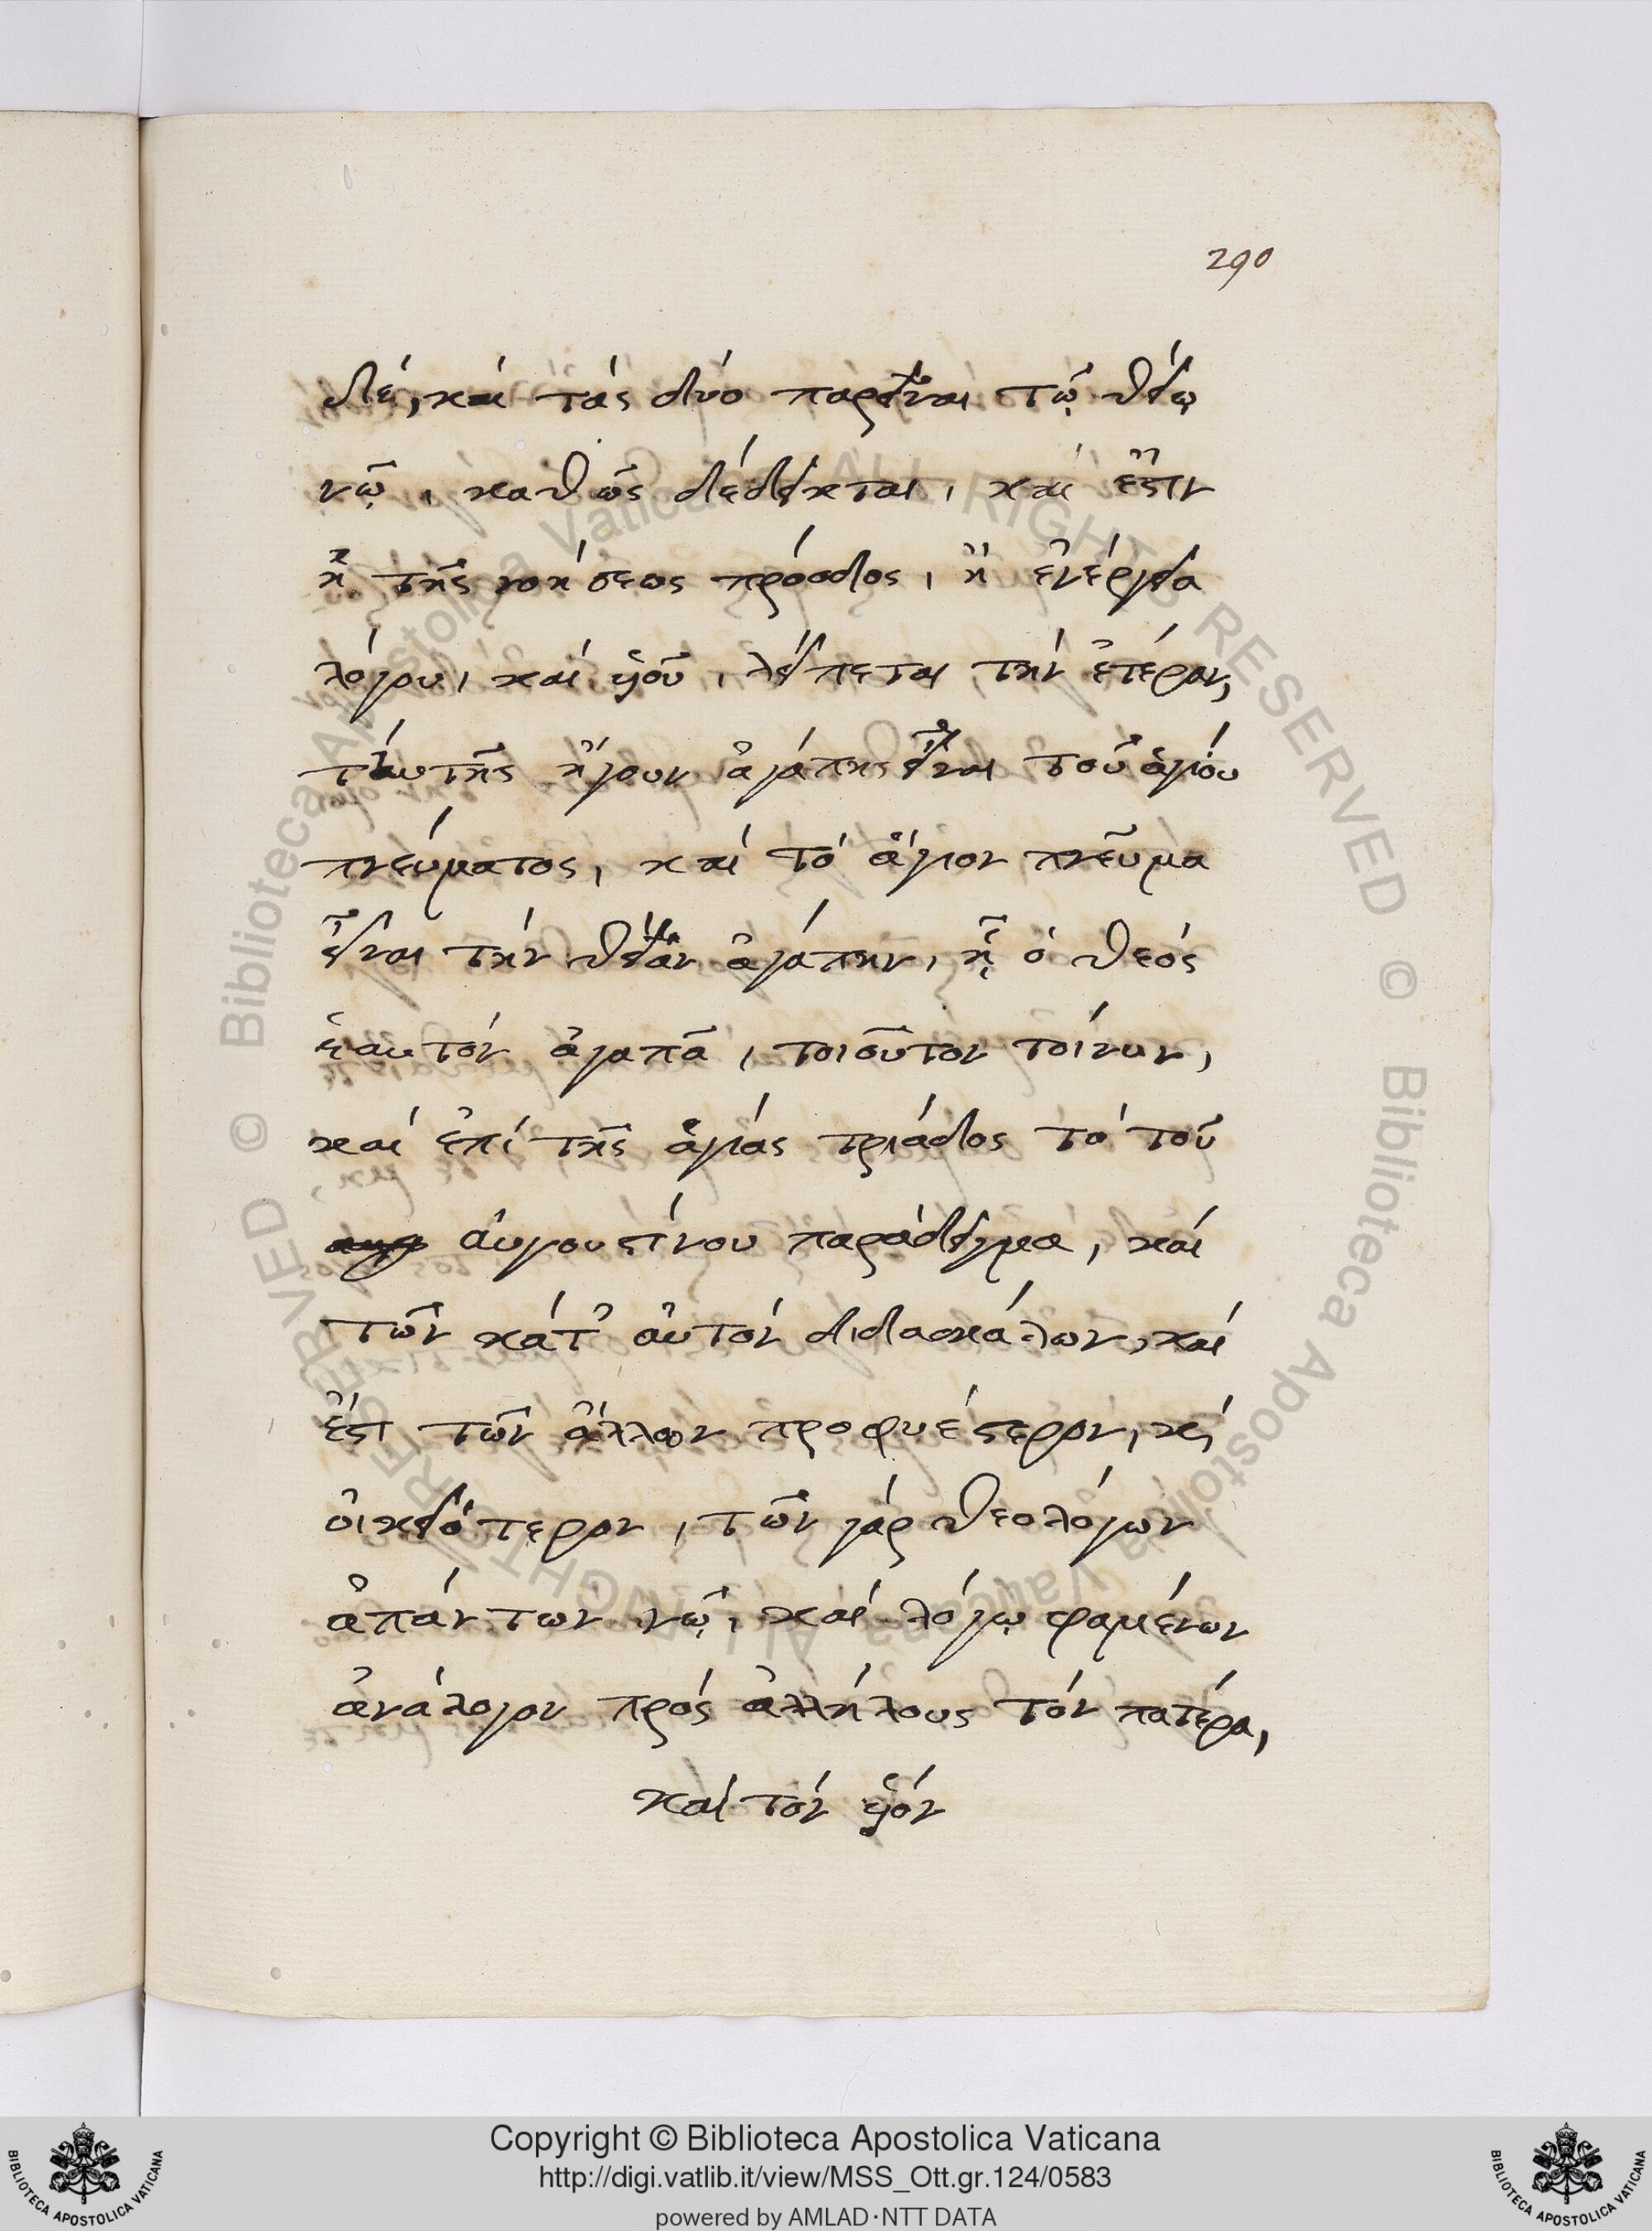 290
δέ, καὶ τὰς δύο παρεῖναι τῷ θείῳ
νῷ, καθὼς δέδεικται, καὶ ἔστιν
ἢ τῆς νοήσεως πρόοδος, ἢ ἐνέργεια
λόγου, καὶ ὑοῦ, λείπεται τὴν ἑτέραν,
ταυτῆς ἤγουν ἀγάπης εἶναι τοῦ ἁγίου
πνεύματος, καὶ τὸ ἅγιον πνεῦμα
εἶναι τὴν θείαν ἀγάπην, ᾗ ὁ θεὸς
ἑαυτὸν ἀγαπᾶ, τοιοῦτον τοίνυν,
καὶ ἐπὶ τῆς ἁγίας τριάδος τὸ τοῦ
αὐγουστίνου παράδειγμα, καὶ
τῶν κάτ' αὐτὸν διδασκάλων, καὶ
ἔστι τῶν ἄλλων προφυέστερον, κὶ
οἰκειότερον, τῶν γάρ θεολόγων
ἁπάντων νῷ, καὶ λόγῳ φαμένων
ἀνάλογον πρὸς ἀλλήλους τὸν πατέρα,
καὶ τὸν ὑόν
© Biblioteca Apostolica Vaticana ALL RIGHTS RESERVED © Biblioteca Apostolica Vaticana ALL RIGHTS RESERVED
Copyright © Biblioteca Apostolica Vaticana
http://digi.vatlib.it/view/MSS_Ott.gr.124/0583
powered by AMLAD·NTT DATA
BIBLIOTECA APOSTOLICA VATICANA
BIBLIOTECA APOSTOLICA VATICANA